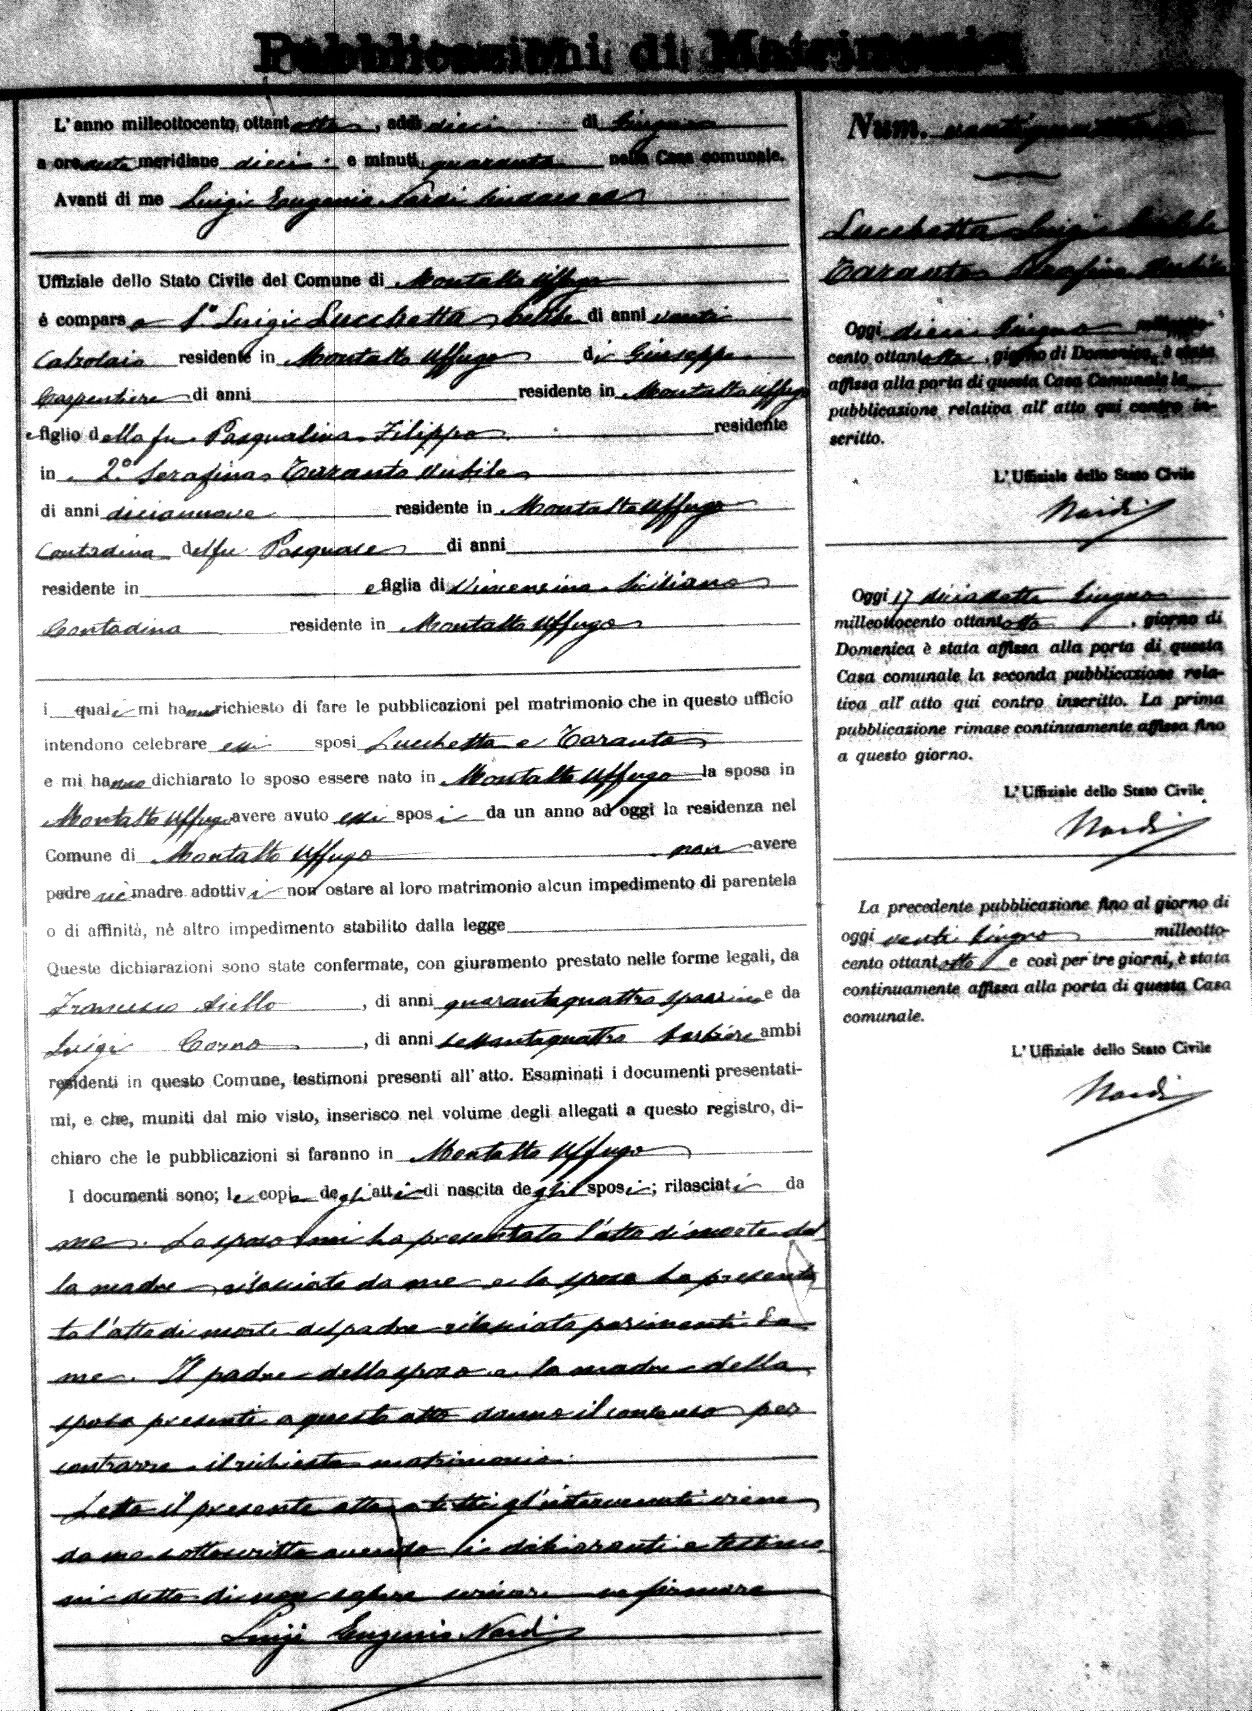 Pubblicazioni di Matrimonio
L'anno milleottocento ottantotto, addì dieci di Giugno
a ore ante meridiane dieci e minuti quaranta nella Casa comunale.
Avanti di me Luigi Eugenio Nardi Sindaco ed
Uffiziale dello Stato Civile del Comune di Montalto Uffugo
é comparso 1.º Luigi Lucchetta celibe di anni venti
Calzolaio residente in Montalto Uffugo di Giuseppe
Carpentiere di anni residente in Montalto Uffugo
e figlio della fu Pasqualina Filippo residente
in 2.º Serafina Taranto Nubile
di anni diciannove residente in Montalto Uffugo
Contadina del fu Pasquale di anni
residente in e figlia di Vincenzina Siciliano
Contadina residente in Montalto Uffugo
i quali mi hanno richiesto di fare le pubblicazioni pel matrimonio che in questo ufficio
intendono celebrare essi sposi Lucchetta e Taranto
e mi hanno dichiarato lo sposo essere nato in Montalto Uffugo la sposa in
Montalto Uffugo avere avuto essi sposi da un anno ad oggi la residenza nel
Comune di Montalto Uffugo non avere
padre nè madre adottivi non ostare al loro matrimonio alcun impedimento di parentela
o di affinità, nè altro impedimento stabilito dalla legge
Queste dichiarazioni sono state confermate, con giuramento prestato nelle forme legali, da
Francesco Aiello, di anni quarantaquattro spazzino e da
Luigi, di anni sessantaquattro barbiere ambi
residenti in questo Comune, testimoni presenti all'atto. Esaminati i documenti presentati-
mi, e che, muniti dal mio visto, inserisco nel volume degli allegati a questo registro, di-
chiaro che le pubblicazioni si faranno in Montalto Uffugo
I documenti sono; le copie degli atti di nascita degli sposi; rilasciati da
me. Lo sposo mi ha presentato l'atto di morte del
la madre rilasciato da me e la sposa ha presenta
to l'atto di morte del padre rilasciato parimenti da
me. Il padre dello sposo e la madre della
sposa presenti a questo atto danno il consenso per
contrarre il richiesto matrimonio.
Letto il presente atto a tutti gl'intervenuti viene
da me sottoscritto avendo i dichiaranti e testimo
ni detto di non sapere scrivere ne firmare
Luigi Eugenio Nardi
Num. ventiquattro
Lucchetta Luigi Celibe
Taranto Serafina Nubile
Oggi dieci Giugno milleotto-
cento ottantotto, giorno di Domenica, è stata
affissa alla porta di questa Casa Comunale la
pubblicazione relativa all'atto qui contro in-
scritto.
L'Uffiziale dello Stato Civile
Nardi
Oggi 17 diciassette Giugno
milleottocento ottantotto, giorno di
Domenica è stata affissa alla porta di questa
Casa comunale la seconda pubblicazione rela-
tiva all'atto qui contro inscritto. La prima
pubblicazione rimase continuamente affissa fino
a questo giorno.
L'Uffiziale dello Stato Civile
Nardi
La precedente pubblicazione fino al giorno di
oggi venti Giugno milleotto-
cento ottantotto e così per tre giorni, è stata
continuamente affissa alla porta di questa Casa
comunale.
L'Uffiziale dello Stato Civile
Nardi